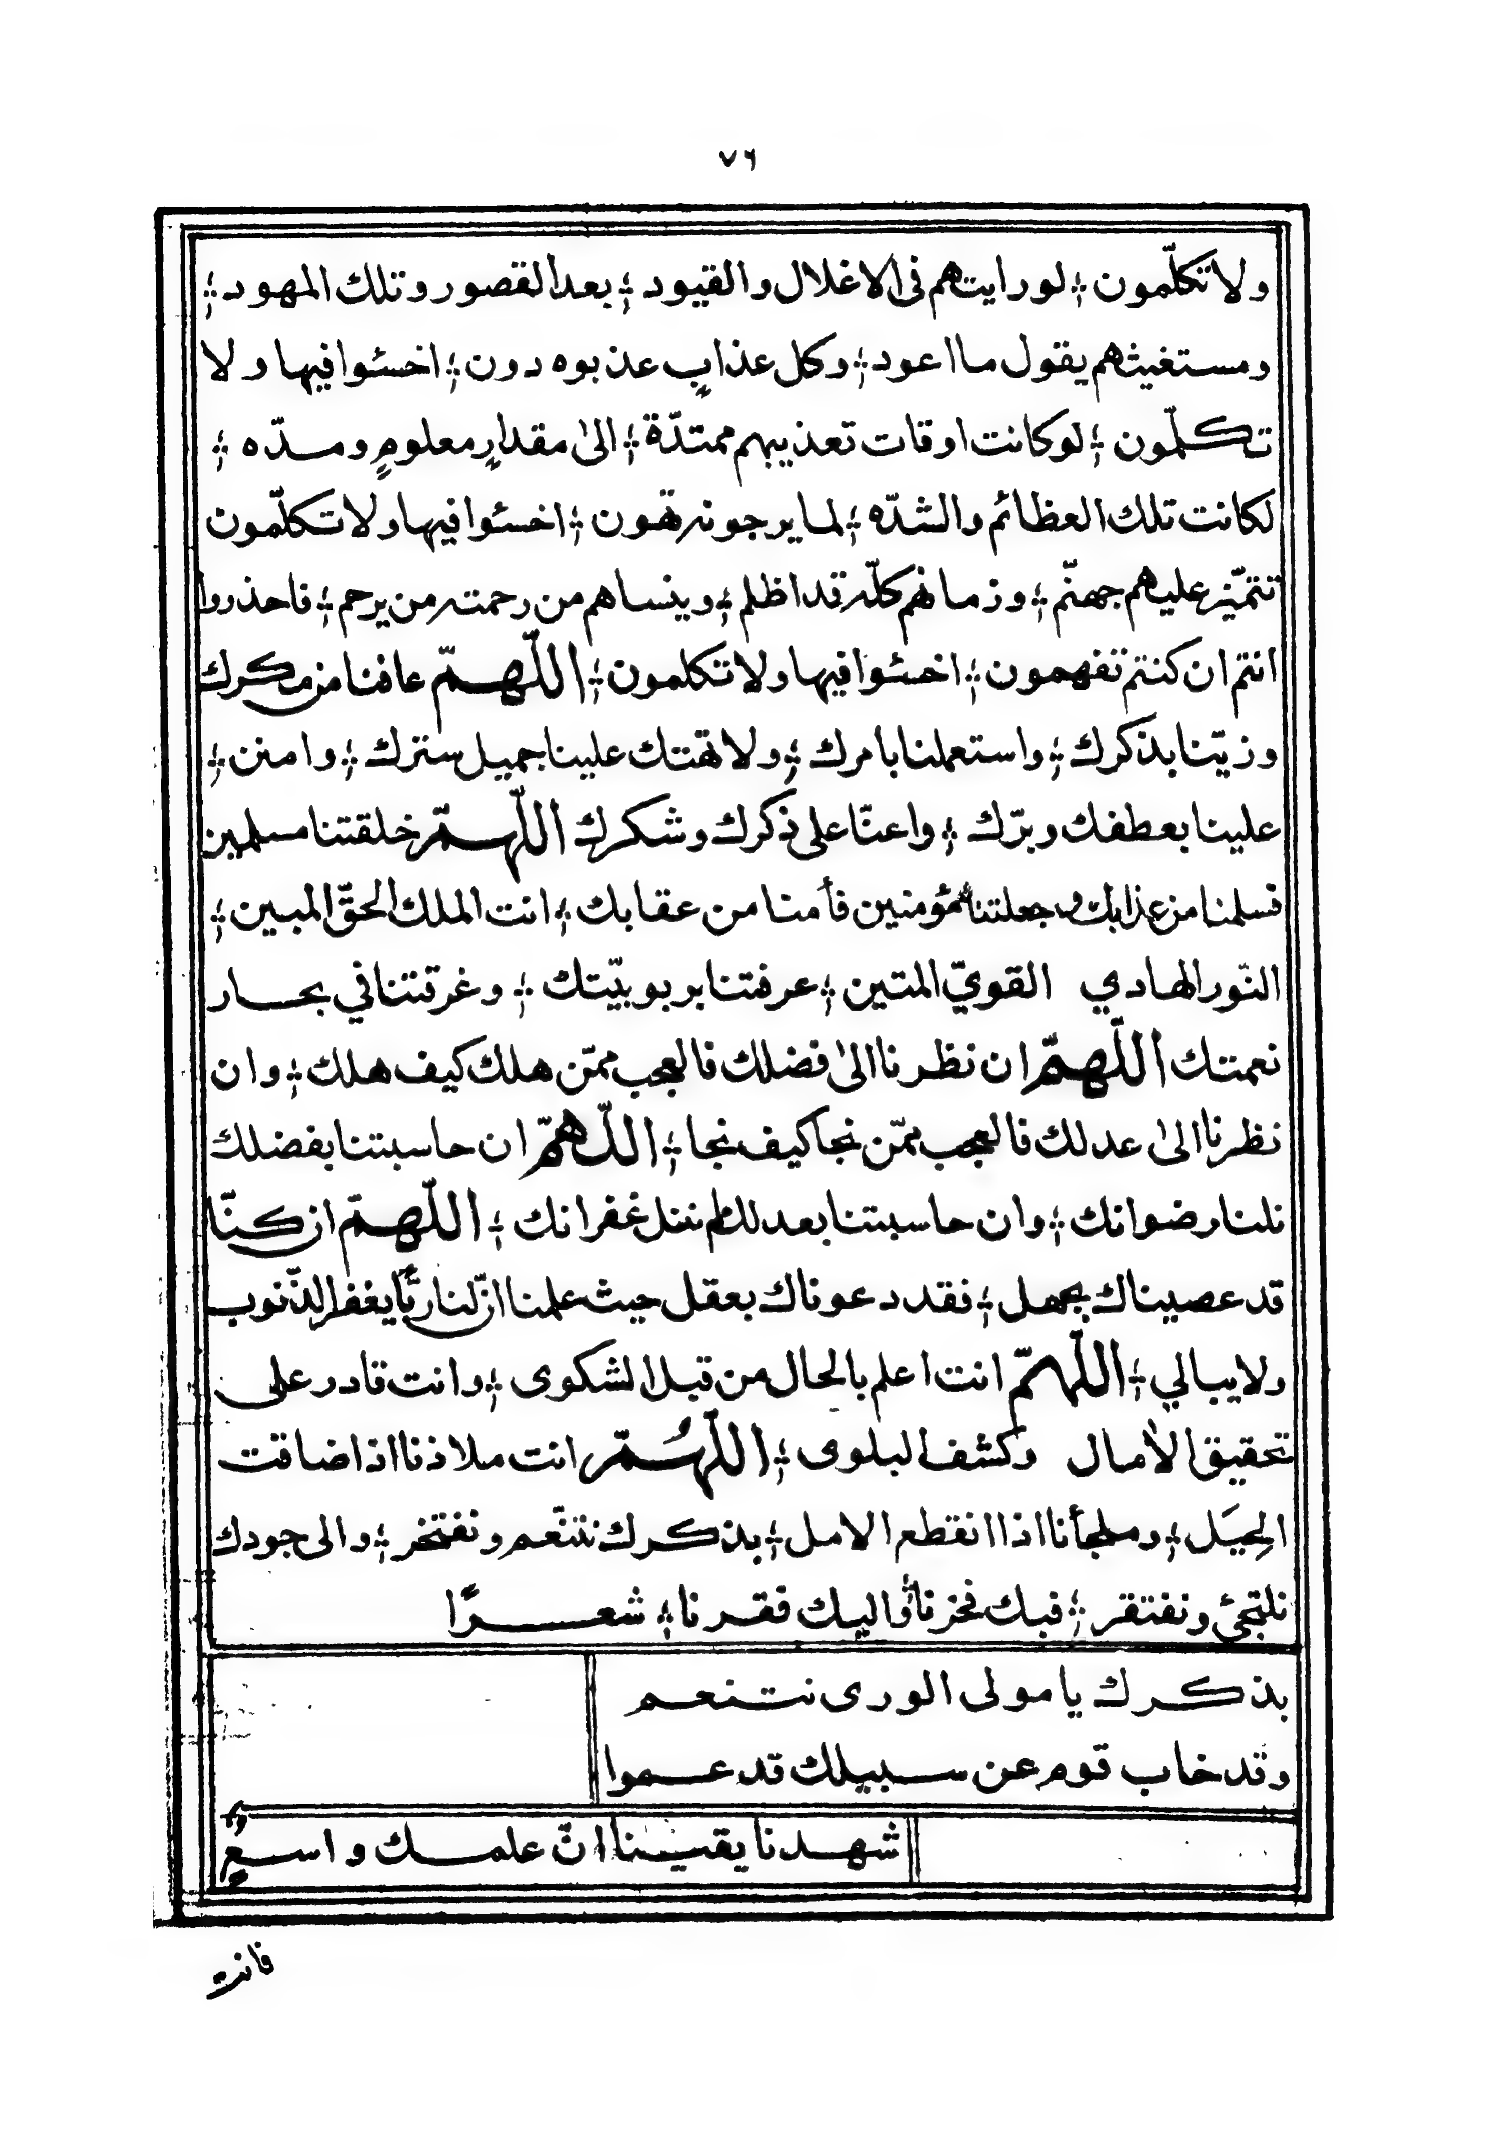 ٧٦
ولا تكلّمون ؛ لو رايتهم فى الاغلال والقيود ؛ بعد القصور وتلك المهود ؛
ومستغيثهم يقول ما اعود ؛ وكل عذابٍ عذبوه دون ؛ اخسئوا فيها ولا
تكلّمون ؛ لو كانت اوقات تعذيبهم ممتدّة ؛ الىٰ مقدارٍ معلومٍ ومدّه ؛
لكانت تلك العظائم والشدّه ؛ لما يرجونه تهون ؛ اخسئوا فيها ولا تكلّمون
تتميّز عليهم جهنّم ؛ وزمانهم كلّه قد اظلم ؛ وينساهم من رحمته من يرحم ؛ فاحذروا
انتم ان كنتم تفهمون ؛ اخسئوا فيها ولا تكلمون ؛ اللّهمّ عافنا من مكرك
وزيّنا بذكرك ؛ واستعملنا بامرك ؛ ولا تهتك علينا جميل سترك ؛ وامنن ؛
علينا بعطفك وبرّك ؛ واعنّا على ذكرك وشكرك اللّهمّ خلقتنا مسلمين
فسلمنا من عذابك وجعلتنا مؤمنين فأمنا من عقابك ؛ انت الملك الحقّ المبين ؛
النّور الهادي القويّ المتين ؛ عرفتنا بربوبيّتك ؛ وغرقتنا في بحار
نعمتك اللّهمّ ان نظرنا الىٰ فضلك فالعجب ممّن هلك كيف هلك ؛ وان
نظرنا الىٰ عدلك فالعجب ممّن نجا كيف نجا ؛ اللّهمّ ان حاسبتنا بفضلك
نلنا رضوانك ؛ وان حاسبتنا بعدلك لم ننل غفرانك ؛ اللّهمّ ان كنّا
قد عصيناك بجهل ؛ فقد دعوناك بعقل حيث علمنا انّ لنا ربًّا يغفر الذّنوب
ولا يبالي ؛ اللّهمّ انت اعلم بالحال من قبل الشكوى ؛ وانت قادر على
تحقيق الاٰمال وكشف البلوى ؛ اللّهُمّ انت ملاذنا اذا ضاقت
الحِيَل ؛ وملجأنا اذا انقطع الامل ؛ بذكرك نتنعّم ونفتخر ؛ والى جودك
نلتجئ ونفتقر ؛ فبك فخرنا وٲاليك فقرنا ؛ شعرًا
بذكرك يا مولى الورى نتنعم
وقد خاب قوم عن سبيلك قد عموا
شهدنا يقينا انّ علمك واسعٌ
فانت